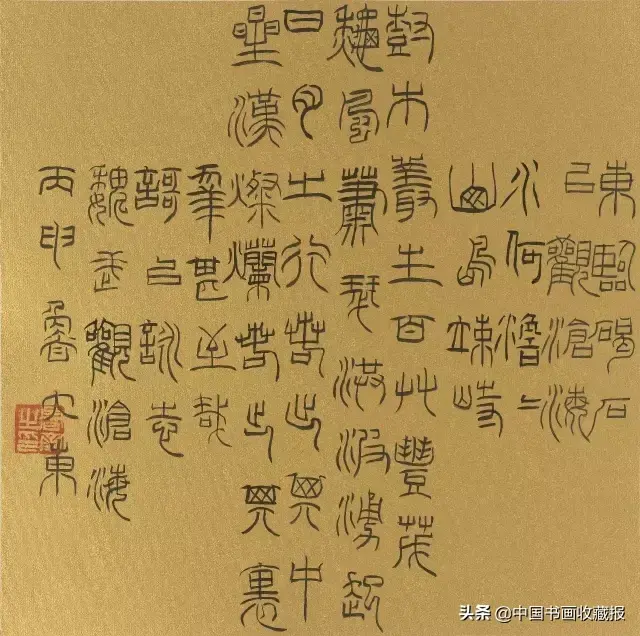 東臨碣石
㠯觀滄海
水何澹〻
山島竦峙
樹木叢生百艸豐茂
秋風蕭瑟洪波湧起
日月之行若出其中
星漢燦爛若出其裏
幸甚至哉
歌㠯詠志
魏武觀滄海
丙申魯大東
头条 @中国书画收藏报